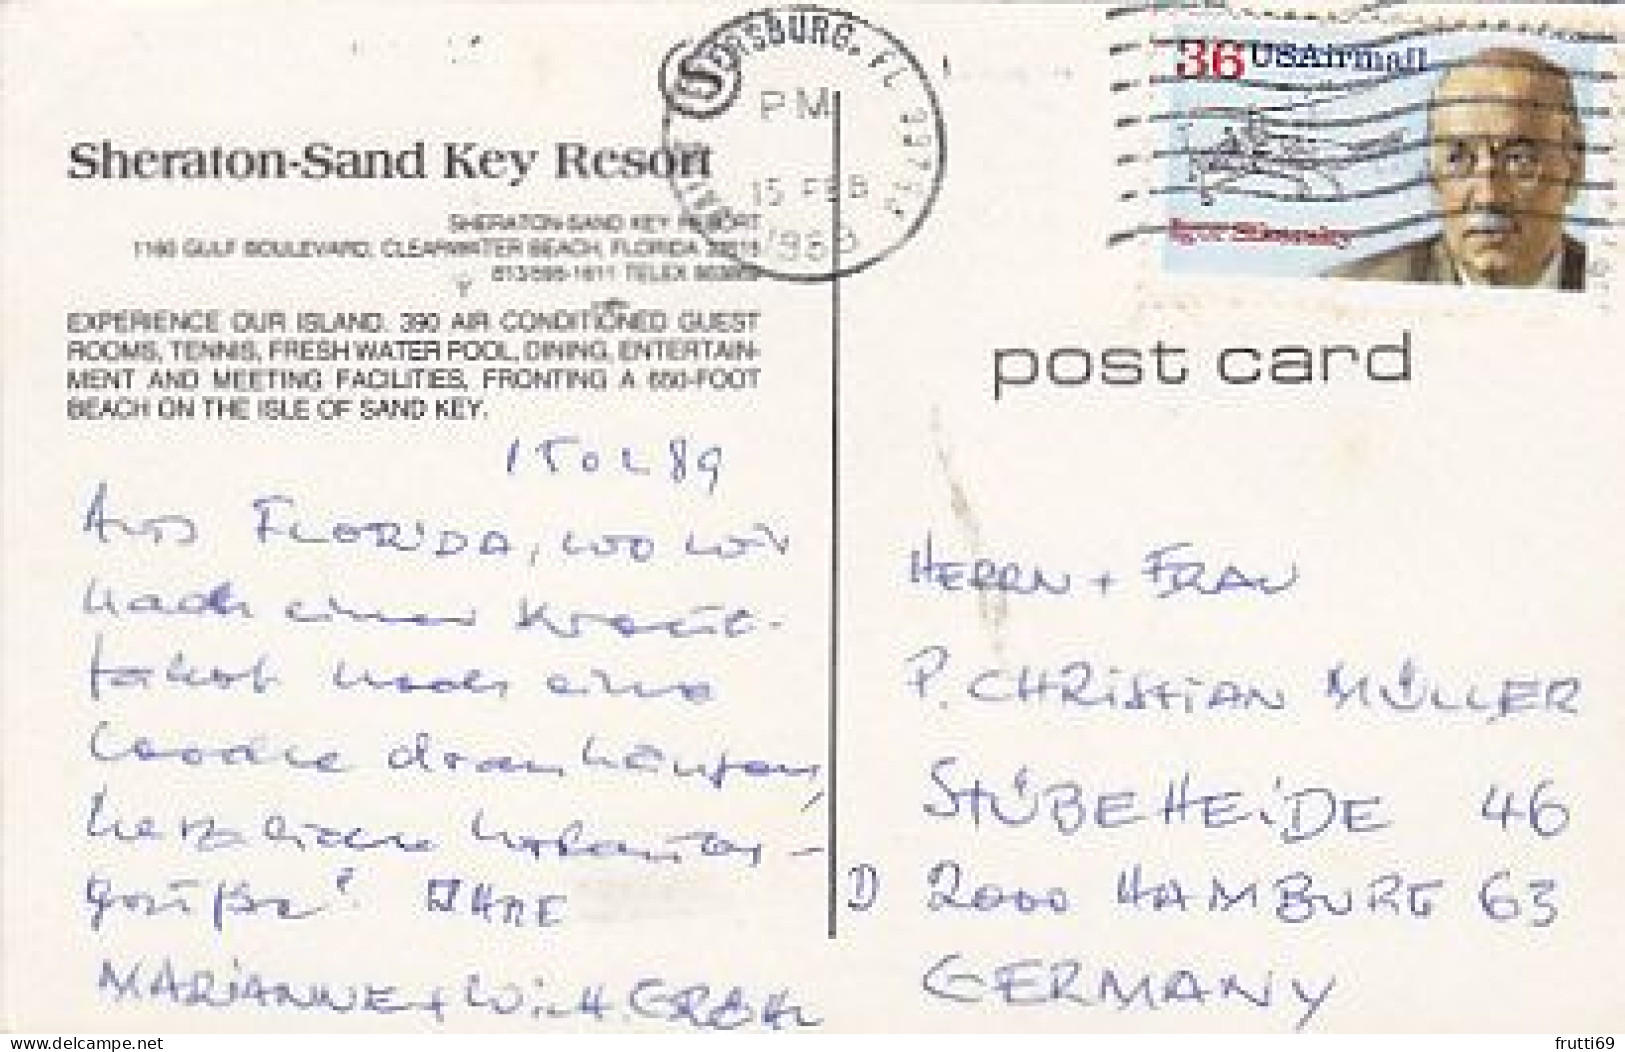 Sheraton-Sand Key Resort
SHERATON-SAND KEY RESORT
1160 GULF BOULEVARD, CLEARWATER BEACH, FLORIDA
813/595-1611 TELEX
EXPERIENCE OUR ISLAND. 390 AIR CONDITIONED GUEST
ROOMS, TENNIS, FRESH WATER POOL, DINING, ENTERTAIN-
MENT AND MEETING FACILITIES, FRONTING A 650-FOOT
BEACH ON THE ISLE OF SAND KEY.
89
Aus FLORIDA, wo wir
nach einer
noch eine
Woche dranhängen,
herzliche Urlaubs-
grüße! IHRE
MARIANNE + WILH.
ERSBURG, FL
PM
15 FEB
36 USAirmail
Igor Sikorsky
post card
HERRN + FRAU
P. CHRISTIAN MÜLLER
STÜBEHEIDE 46
D 2000 HAMBURG 63
GERMANY
delcampe.net
frutti69